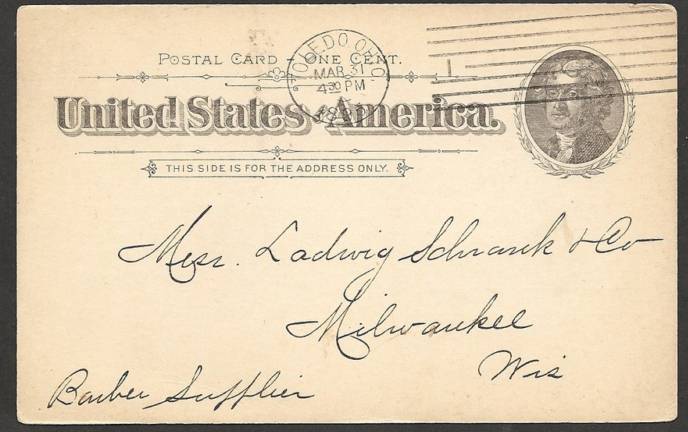 POSTAL CARD – ONE CENT.
United States America.
THIS SIDE IS FOR THE ADDRESS ONLY.
TOLEDO, OHIO
MAR 31
4 30 PM
1
Mess. Ladwig Schrank & Co
Milwaukee
Wis
Barber Supplier